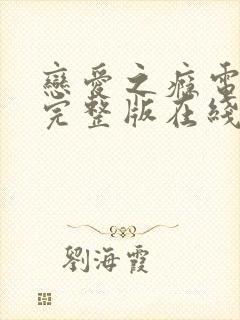 戀愛之癮電
完整版在綫
劉海霞